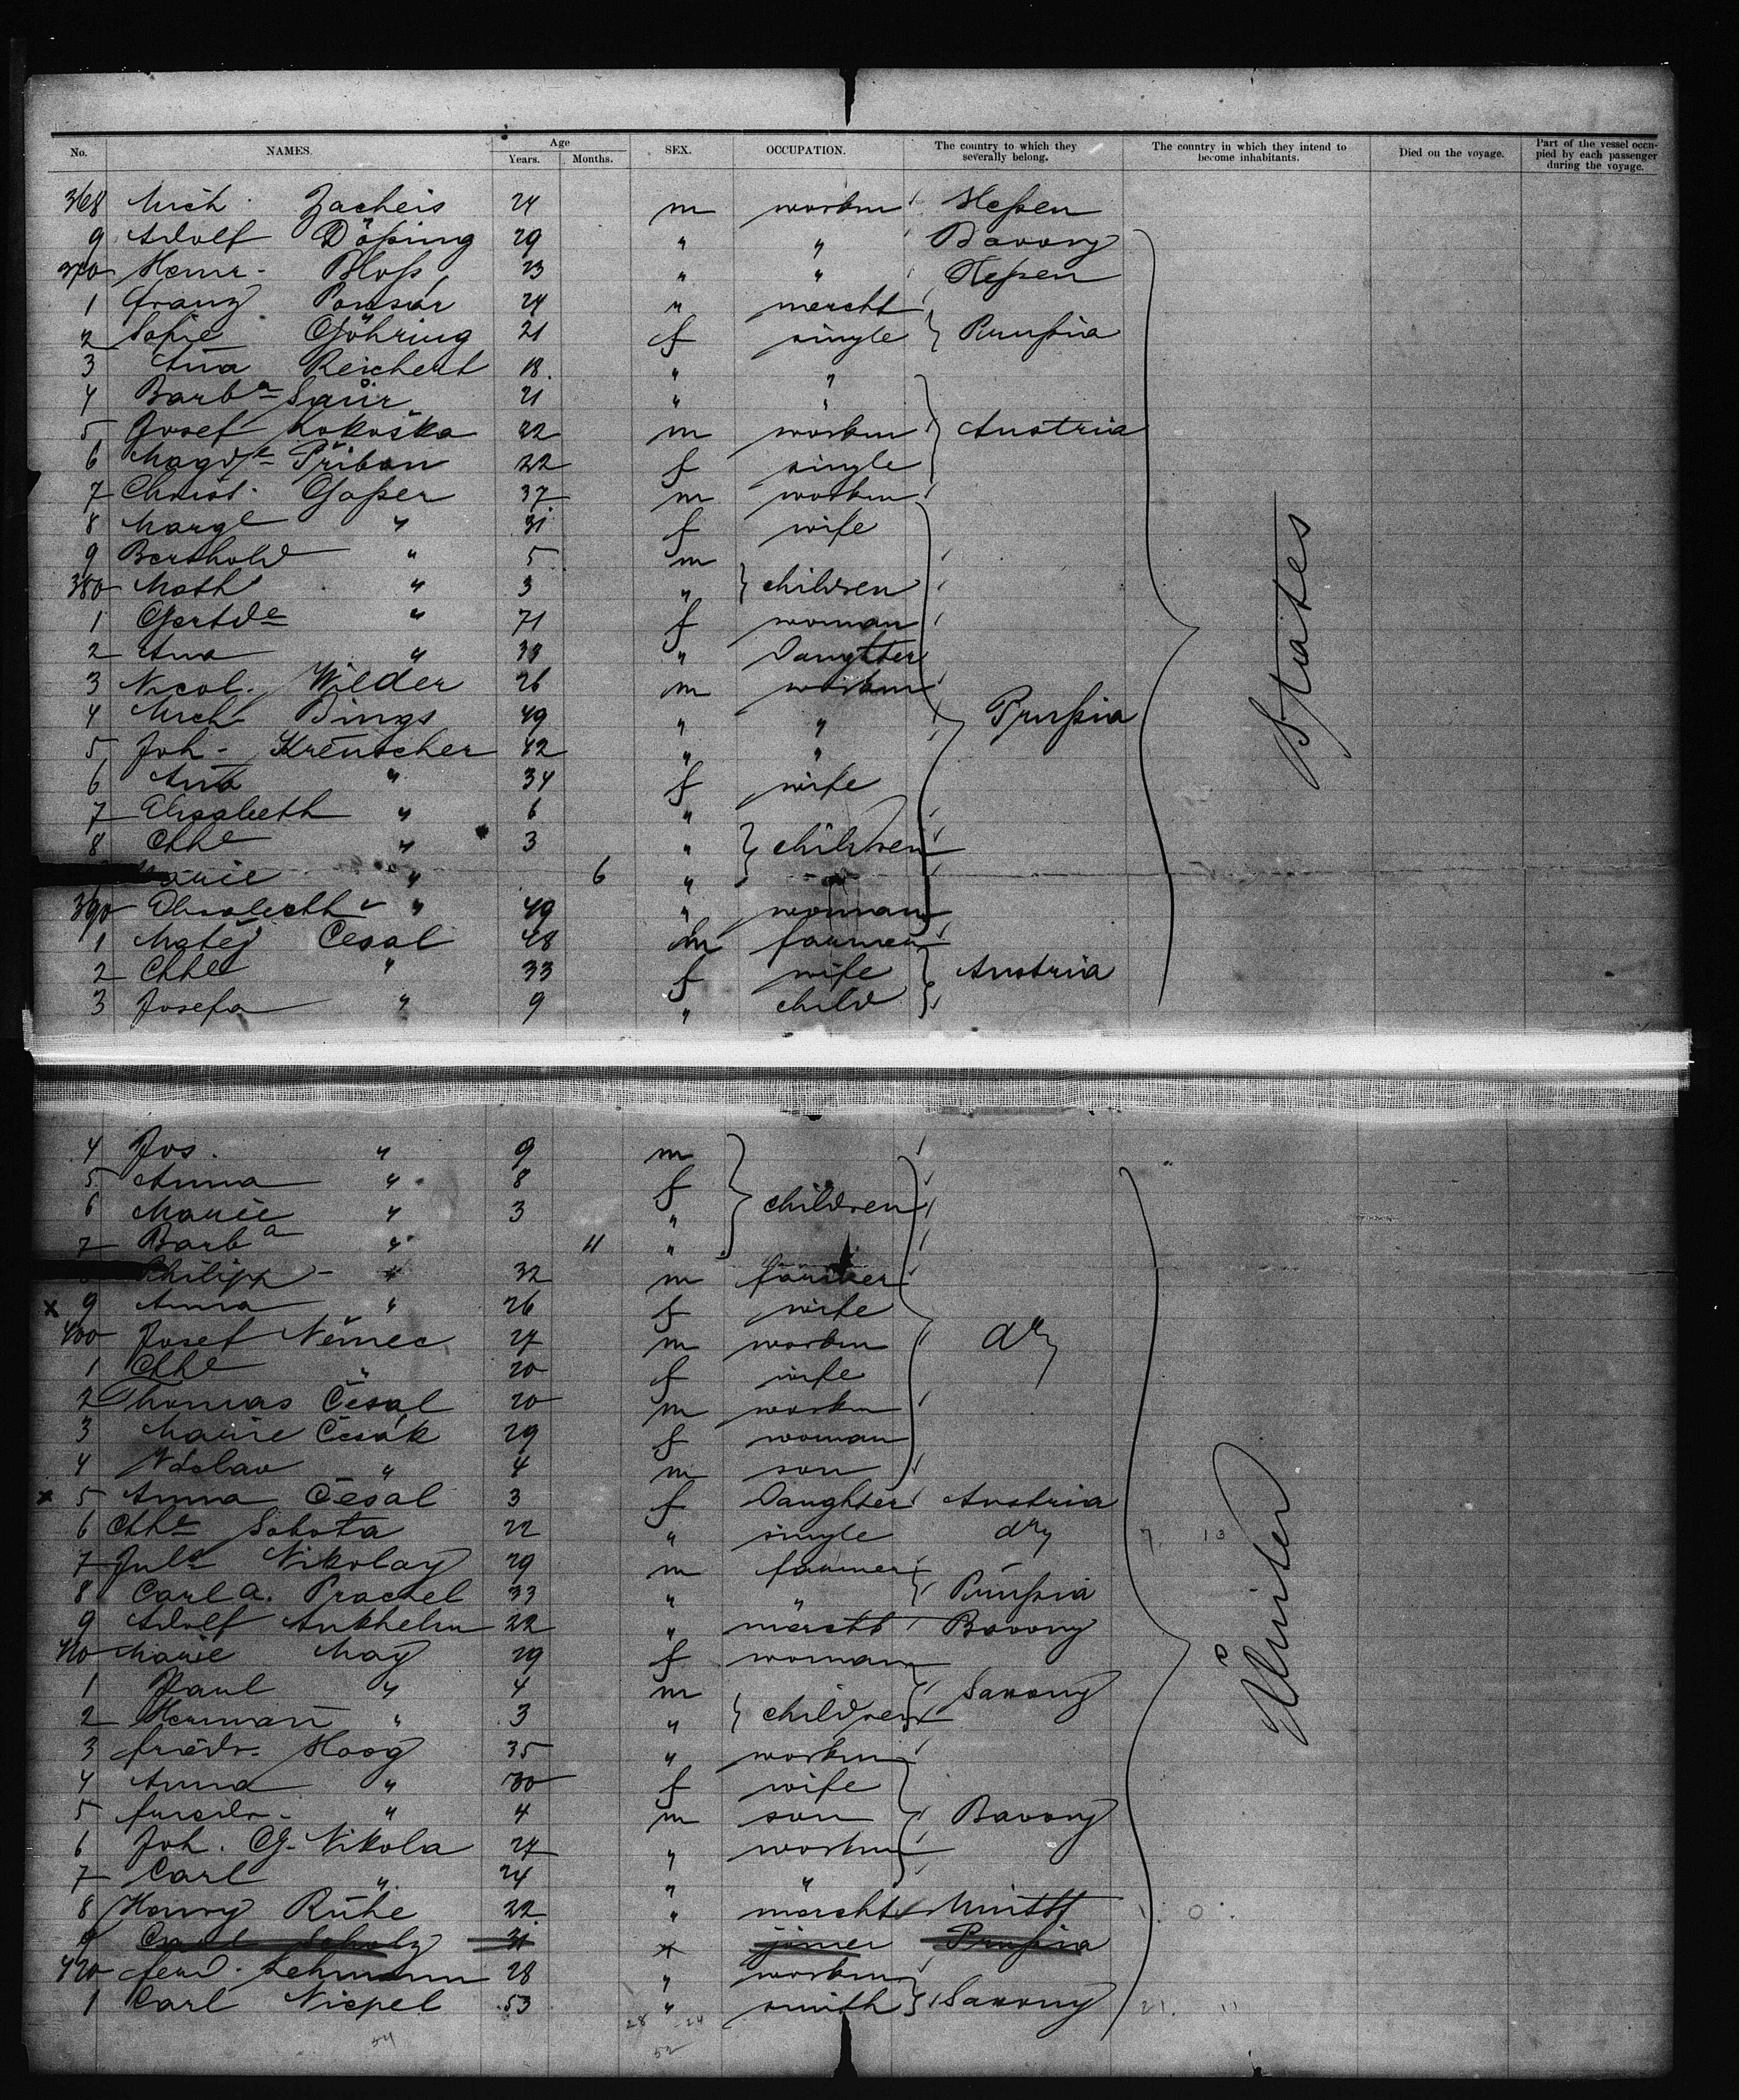 No. NAMES. Age Years. Months. SEX. OCCUPATION. The country to which they severally belong. The country in which they intend to become inhabitants. Died on the voyage. Part of the vessel occupied by each passenger during the voyage.
368 Mich. Zacheis 24 m workm Heßen
9 Adolf Dößing 29 " " Bavary
370 Heinr. Bloß 23 " " Heßen
1 Franz Ponsar 24 " mercht
2 Sofie Göhring 21 f single } Prußia
3 Aña Reichert 18 " "
4 Barba Saur 21 " "
5 Josef Kokoška 22 m workm } Austria
6 Magde Přiban 22 f single
7 Christ. Gaßer 37 m workm
8 Marge " 31 f wife
9 Berthold " 5 m
380 Math " 3 " } children
1 Gertde " 71 f woman
2 Ana " 38 " Daughter
3 Nicol. Wilder 26 m workm
4 Mich Dings 49 " " Prußia
5 Joh. Kreuscher 42 " "
6 Aña " 34 f wife
7 Elisabeth " 6 "
8 Cthe " 3 " } children
Marie " 6 "
390 Elisabeth " 49 " woman
1 Matěj Cesal 48 m farmer
2 Cthe " 33 f wife } Austria
3 Josefa " 9 " child
States
4 Jos. " 9 m
5 Anna " 8 f
6 Marie " 3 " } children
7 Barba " 11 "
Philipp " 32 m farmer
x 9 Anna " 26 f wife
400 Josef Němec 27 m workm do
1 Cthe " 20 f wife
2 Thomas Česal 20 m workm
3 Marie Česák 29 f woman
4 Vaclav " 4 m son
x 5 Anna Česal 3 f Daughter Austria
6 Cthe Sobota 22 " single do
7 Juls Nikolay 29 m farmer
8 Carl A. Prachel 33 " " } Prußia
9 Adolf Ankhelm 22 " mercht Bavary
410 Marie May 29 f woman
1 Paul " 4 m Saxony
2 Hermañ " 3 " } children
3 Friedr. Haag 35 " workm
4 Anna " 30 f wife
5 Friedr. " 4 m son Bavary
6 Joh. G. Nikola 27 " workm
7 Carl " 24 " "
8 Henry Rühe 22 " mercht
9 Carl Scholz 31 " joiner Prußia
420 Ferd. Lehmann 28 " workm
1 Carl Niepel 53 " smith } Saxony
Uniter
28 24
54
52